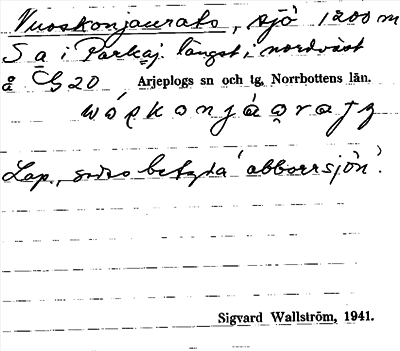 Vuoskonjaurats, sjö 1200 m
S a i Parkaj. längst i nordväst
å Cb 20 Arjeplogs sn och tg, Norrbottens län.
Lap., sades betyda 'abborrsjön'.
Sigvard Wallström, 1941.